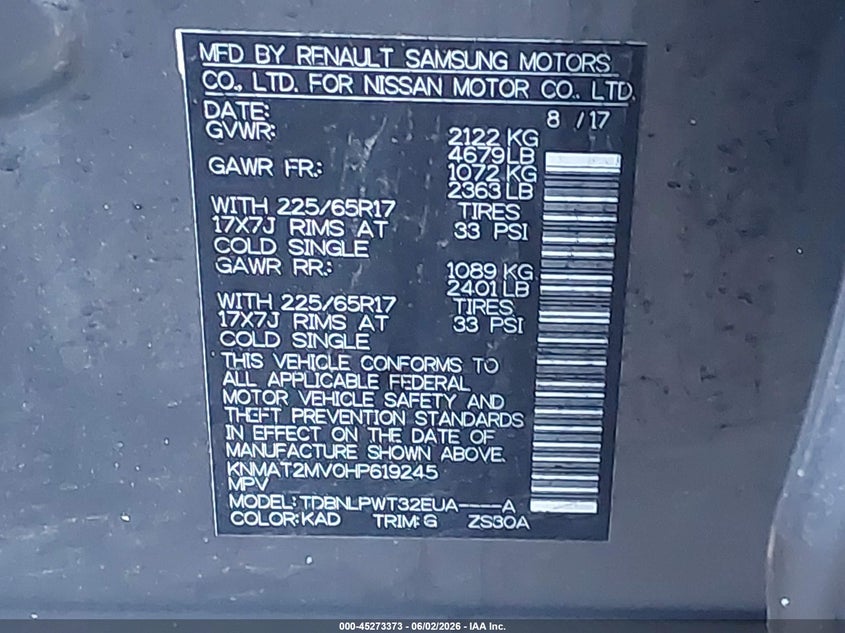 MFD BY RENAULT SAMSUNG MOTORS
CO., LTD. FOR NISSAN MOTOR CO., LTD.
DATE: 8 /17
GVWR: 2122 KG
4679 LB
GAWR FR.: 1072 KG
2363 LB
WITH 225/65R17 TIRES
17X7J RIMS AT 33 PSI
COLD SINGLE
GAWR RR.: 1089 KG
2401 LB
WITH 225/65R17 TIRES
17X7J RIMS AT 33 PSI
COLD SINGLE
THIS VEHICLE CONFORMS TO
ALL APPLICABLE FEDERAL
MOTOR VEHICLE SAFETY AND
THEFT PREVENTION STANDARDS
IN EFFECT ON THE DATE OF
MANUFACTURE SHOWN ABOVE.
KNMAT2MV0HP619245
MPV
MODEL: TDBNLPWT32EUA----A
COLOR: KAD TRIM: G ZS30A
000-45273373 - 06/02/2026 - IAA Inc.